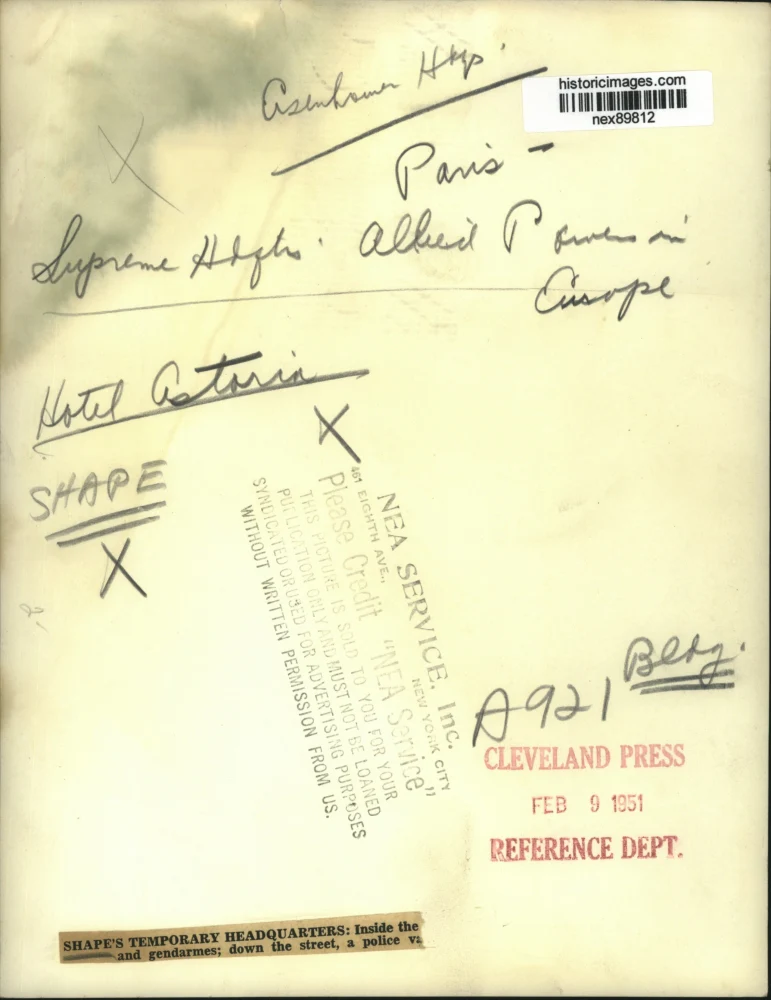 Eisenhower Hqs.
historicimages.com
nex89812
Paris -
Supreme Hdqtrs. Allied Powers in
Europe
Hotel Astoria
SHAPE
NEA SERVICE, Inc.
461 EIGHTH AVE., NEW YORK CITY
Please Credit "NEA Service"
THIS PICTURE IS SOLD TO YOU FOR YOUR
PUBLICATION ONLY AND MUST NOT BE LOANED
SYNDICATED OR USED FOR ADVERTISING PURPOSES
WITHOUT WRITTEN PERMISSION FROM US.
2-
A921 Bldg.
CLEVELAND PRESS
FEB 9 1951
REFERENCE DEPT.
SHAPE'S TEMPORARY HEADQUARTERS: Inside the
and gendarmes; down the street, a police